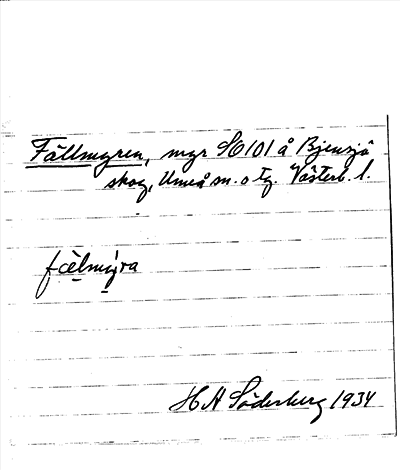 Fällmyren, myr SO 101 å Bjensjö
skog, Umeå sn. o tg. Västerb. l.
fälmýra
H A Söderberg 1934